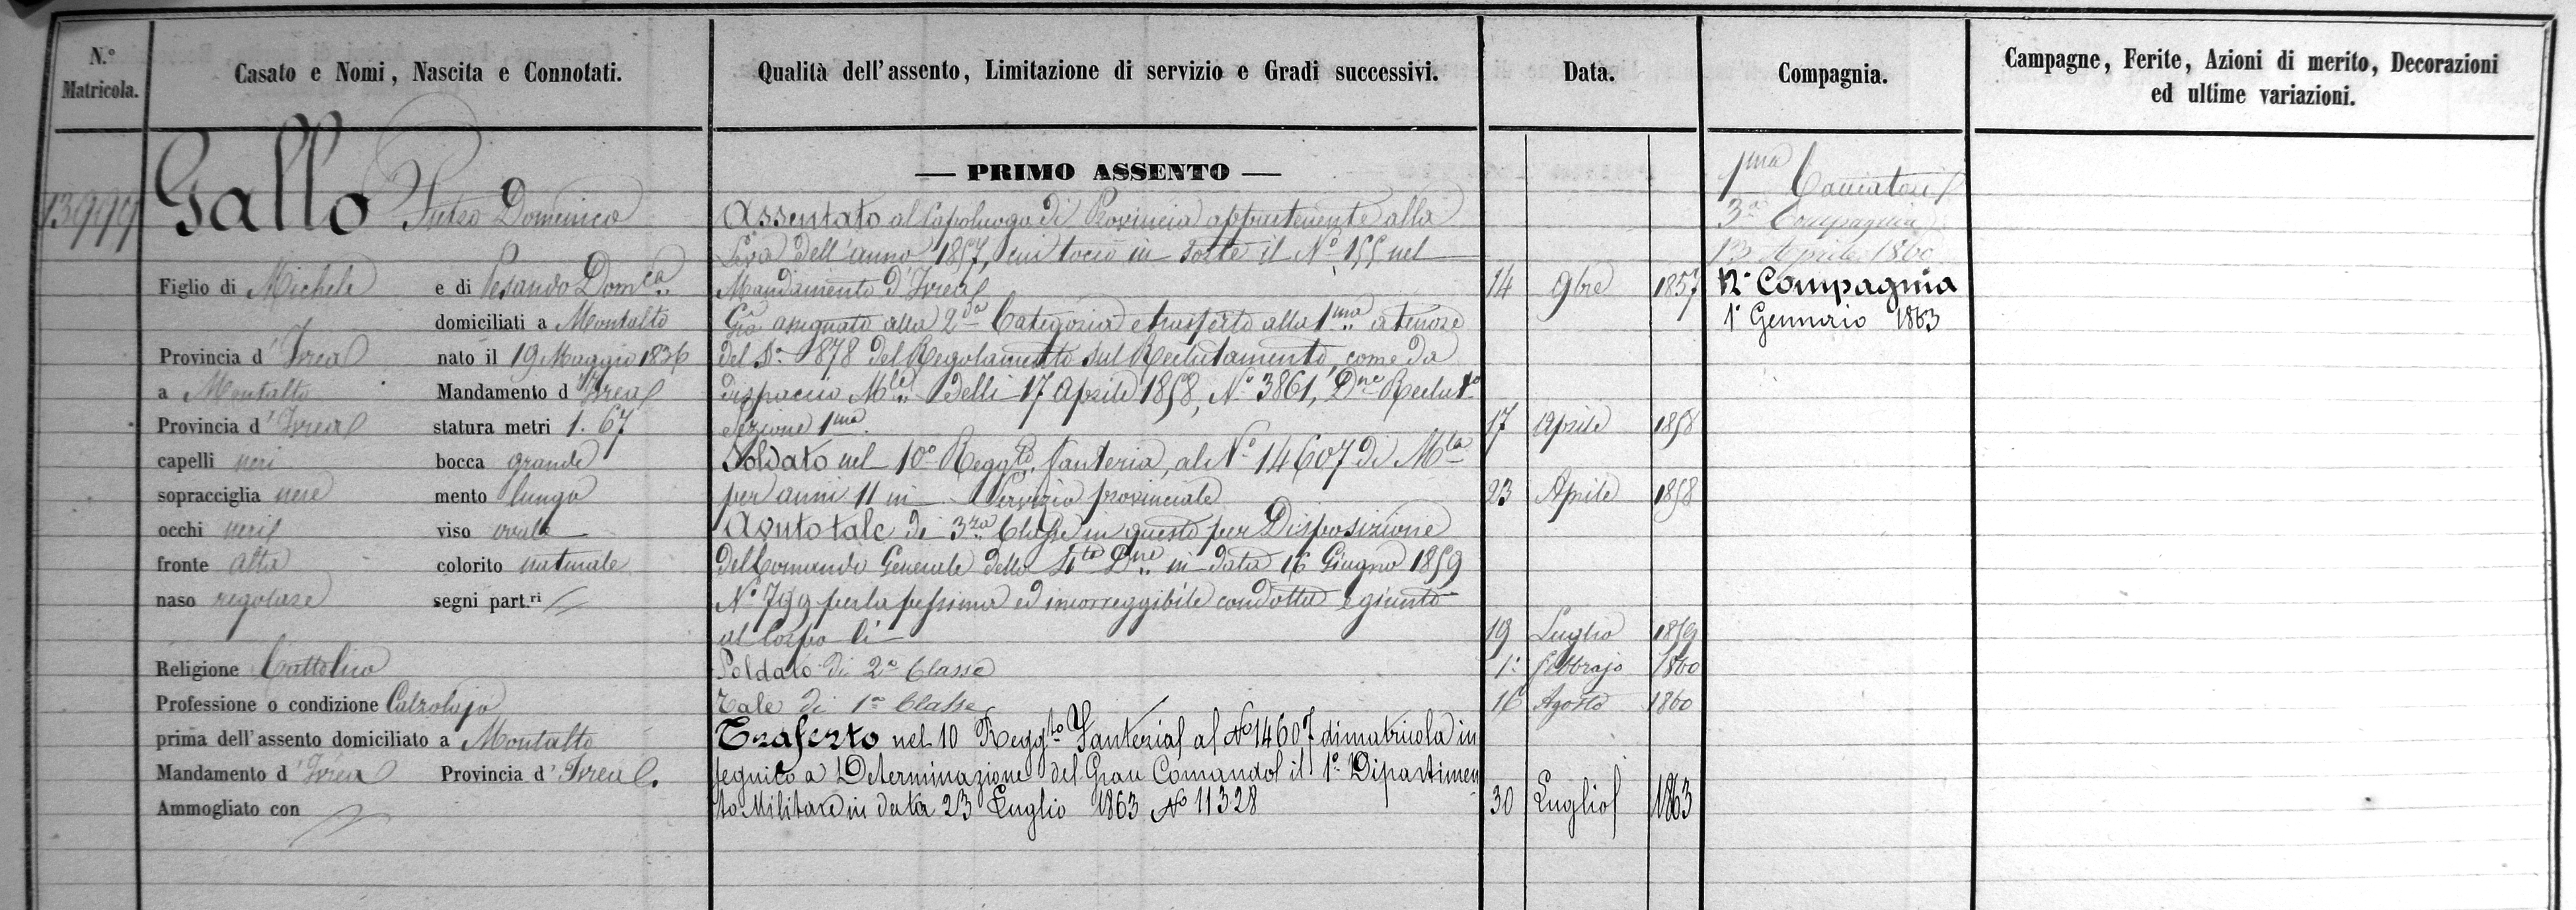 N.° Matricola.
Casato e Nomi, Nascita e Connotati.
Qualità dell'assento, Limitazione di servizio e Gradi successivi.
Data.
Compagnia.
Campagne, Ferite, Azioni di merito, Decorazioni ed ultime variazioni.
13999
Gallo Pietro Domenico
Figlio di Michele e di Pesando Dom.ca
domiciliati a Montalto
Provincia d'Ivrea nato il 19 Maggio 1836
a Montalto Mandamento d'Ivrea
Provincia d'Ivrea statura metri 1.67
capelli neri bocca grande
sopracciglia nere mento lungo
occhi neri viso ovale
fronte alta colorito naturale
naso regolare segni part.ri
Religione Cattolica
Professione o condizione Calzolajo
prima dell'assento domiciliato a Montalto
Mandamento d'Ivrea Provincia d'Ivrea.
Ammogliato con
— PRIMO ASSENTO —
Assentato al Capoluogo di Provincia appartenente alla
Leva dell'anno 1857, cui toccò in sorte il N° 155 nel
Mandamento d'Ivrea 14 9bre 1857
Già assegnato alla 2da Categoria e trasferto alla 1ma a tenore
del §° 878 del Regolamento sul Reclutamento, come da
dispaccio M.le delli 17 Aprile 1858, N° 3861, D.ne Reclut.to
Sezione 1ma. 17 Aprile 1858
Soldato nel 10° Regg.to Fanteria, al N° 14607 di M.la
per anni 11 in Servizio provinciale 23 Aprile 1858
Avuto tale di 3za Classe in questo per Disposizione
del Comando Generale della 4ta D.ne in data 16 Giugno 1859
N° 799 per la pessima ed incorreggibile condotta e giunto
al Corpo li 19 Luglio 1859
Soldato di 2a Classe 1° Febbrajo 1860
Tale di 1a Classe 16 Agosto 1860
Trasferto nel 10 Regg.to Fanteria al N° 14607 di matricola in
seguito a Determinazione del Gran Comando il 1° Dipartimen-
to Militare in data 23 Luglio 1863 N° 11328 30 Luglio 1863
1ma Cacciatori
3a Compagnia
13 Aprile 1860
12a Compagnia
1° Gennaio 1863